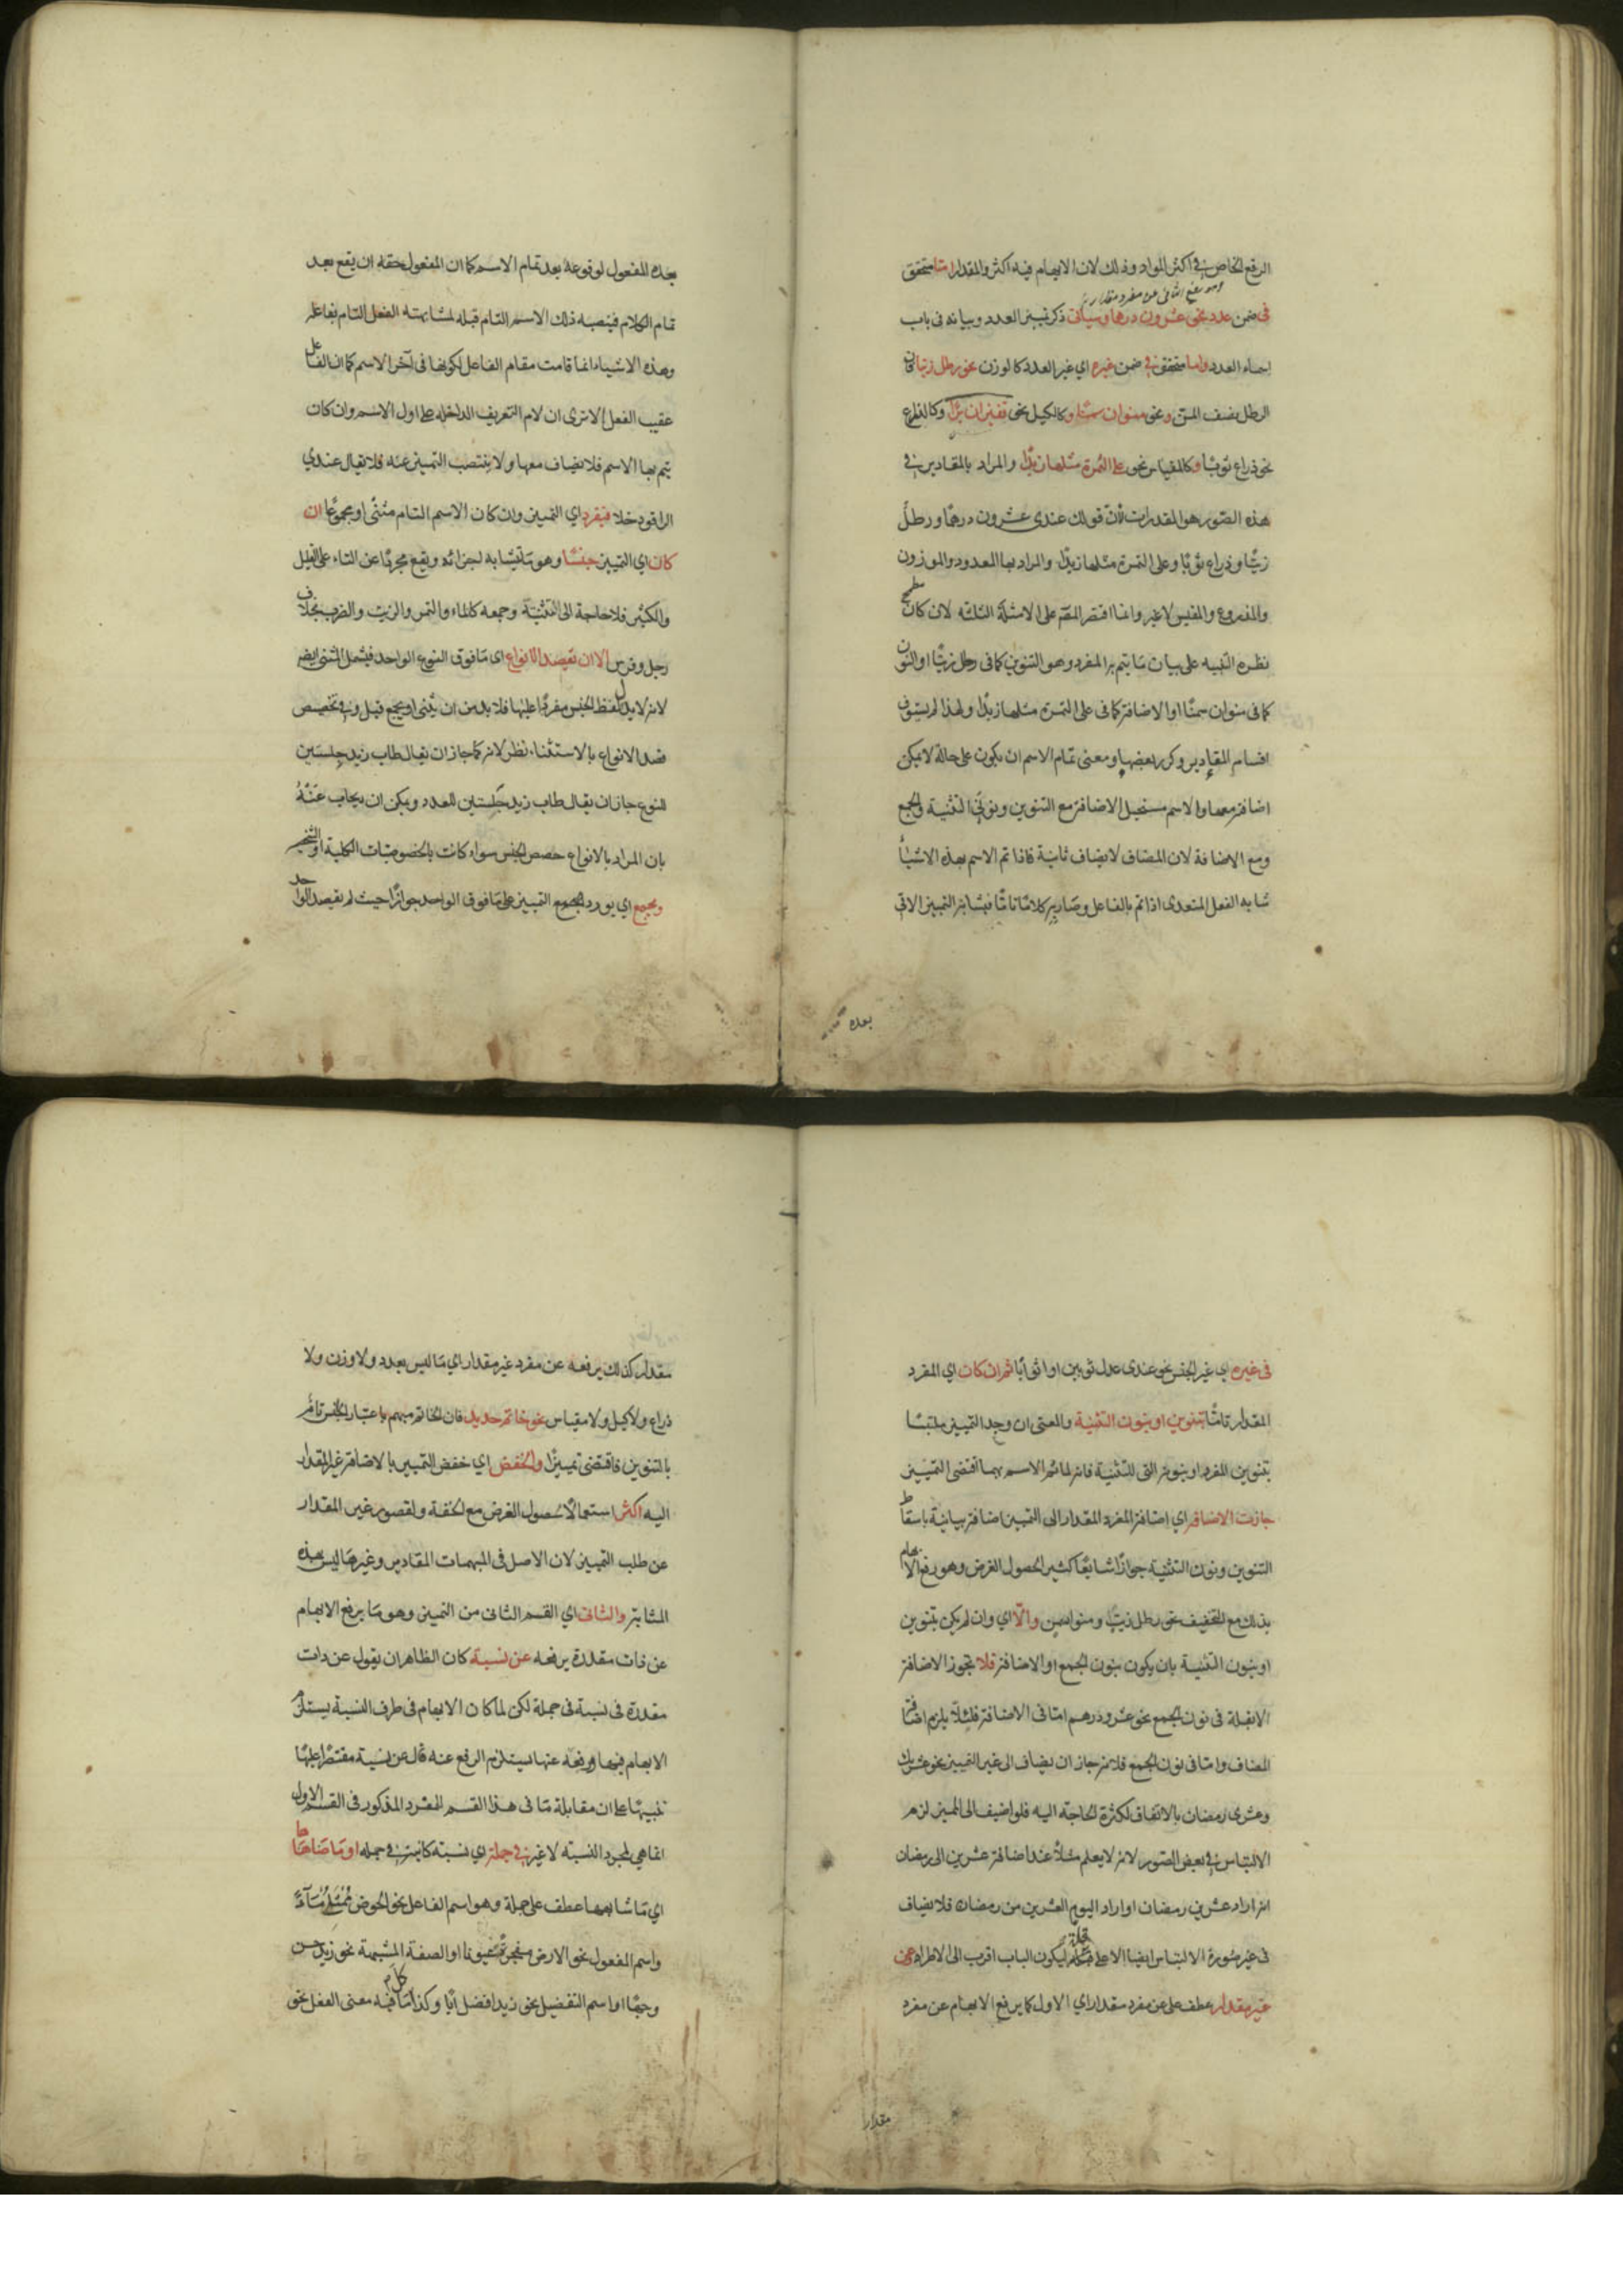 الرفع الخاص في اكثر المواد وذلك لان الابهام فيه اكثر والمقدار اما متحقق
وهو رفع الثانى عن مفرد مقدار
فى ضمن عدد نحو عشرون درهما وسياتى ذكر تمييز العدد وبيانه فى باب
اسماء العدد واما متحقق في ضمن غيره اي غير العدد كالوزن نحو رطل زيتا فان
الرطل نصف المن ونحو منوان سمنا وكالكيل نحو قفيزان برا وكالذراع
نحو ذراع ثوبا وكالمقياس نحو على التمرة مثلها زبدا والمراد بالمقادير في
هذه الصور هو المقدرات لأن قولك عندى عشرون درهما ورطل
زيتا وذراع ثوبا وعلى التمرة مثلها زبدا والمراد بها المعدود والموزون
والمذروع والمقيس لا غير وانما اقتصر المص على الامثلة الثلثه لان كان مطمح
نظره التنبيه على بيان ما يتم به المفرد وهو التنوين كما فى رطل زيتا او النون
كما فى منوان سمنا او الاضافة كما فى على التمرة مثلها زبدا ولهذا لم يستوف
اقسام المقادير وكرر بعضها ومعنى تمام الاسم ان يكون على حالة لا يمكن
اضافته معها والاسم مستحيل الاضافة مع التنوين ونونى التثنية والجمع
ومع الاضافة لان المضاف لا يضاف ثانية فاذا تم الاسم بهذه الاشياء
شابه الفعل المتعدى اذا تم بالفاعل وصار به كلاما تاما فيشابه التمييز الاتى
بعده
بعده المفعول لوقوعه بعد تمام الاسم كما ان المفعول حقه ان يقع بعد
تمام الكلام فينصبه ذلك الاسم التام قبله لمشابهته الفعل التام بفاعله
وهذه الاشياء انما قامت مقام الفاعل لكونها فى آخر الاسم كما ان الفاعل
عقيب الفعل الا ترى ان لام التعريف الداخله على اول الاسم وان كان
يتم بها الاسم فلا يضاف معها ولا ينتصب التمييز عنه فلا يقال عندي
الراقود خلا فيفرد اي التمييز وان كان الاسم التام مثنى او مجموعا ان
كان اي التمييز جنسا وهو ما تشابه اجزائه ويقع مجردا عن التاء على القليل
والكثير فلا حاجة الى تثنيته وجمعه كالماء والتمر والزيت والضرب بخلاف
رجل وفرس الا ان تقصد الانواع اى ما فوق النوع الواحد فيشمل المثنى ايضا
لانه لا يدل لفظ الجنس مفردا عليها فلا بد من ان يثنى او يجمع قيل وفي تخصيص
قصد الانواع بالاستثناء نظر لانه كما جاز ان يقال طاب زيد جلستين
للنوع جاز ان يقال طاب زيد جلستين للعدد ويمكن ان يجاب عنه
بان المراد بالانواع حصص الجنس سواء كانت بالخصوصيات الكلية او الشخصية
ويجمع اي يورد الجمع التمييز على ما فوق الواحد جوازا حيث لم يقصد الواحد
فى غيره اي غير الجنس نحو عندى عدل ثوبين او اثوابا ثم ان كان اي المفرد
المقدار تاما بتنوين او بنون التثنية والمعنى ان وجد التمييز ملتبسا
بتنوين المفرد او بنونه التى للتثنية فانه لما تم الاسم بهما اقتضى التمييز
جازت الاضافه اي اضافة المفرد المقدار الى التمييز اضافة بيانية باسقاط
التنوين ونون التثنية جوازا شايعا كثيرا لحصول الغرض وهو رفع الابهام
بذلك مع التخفيف نحو رطل زيت ومنوا سمن والا اي وان لم يكن بتنوين
او بنون التثنية بان يكون بنون الجمع او الاضافة فلا تجوز الاضافة
الا بقلة فى نون الجمع نحو عشرو درهم اما فى الاضافة فلئلا يلزم اضافة
المضاف واما فى نون الجمع فلانه جاز ان يضاف الى غير التمييز نحو عشريك
وعشرى رمضان بالاتفاق لكثرة الحاجة اليه فلو اضيف الى المميز لزم
الالتباس في بعض الصور لانه لا يعلم مثلا عند اضافة عشرين الى رمضان
انه اراد عشرين رمضان او اراد اليوم العشرين من رمضان فلا يضاف
فى غير صورة الالتباس ايضا الا على قلة ليكون الباب اقرب الى الاطراد وعن
غير مقدار عطف على عن مفرد مقدار اي الاول كما يرفع الابهام عن مفرد
مقدار
مقدار كذلك يرفعه عن مفرد غير مقدار اي ما ليس بعدد ولا وزن ولا
ذراع ولا كيل ولا مقياس نحو خاتم حديد فان الخاتم مبهم باعتبار الجنس تام
بالتنوين فاقتضى تمييزا والخفض اي خفض التمييز بالاضافة غير المقدار
اليه اكثر استعمالا لحصول الغرض مع الخفة ولقصور غير المقدار
عن طلب التمييز لان الاصل فى المبهمات المقادير وغيرها ليس بهذه
المثابة والثانى اي القسم الثانى من التمييز وهو ما يرفع الابهام
عن ذات مقدرة يرفعه عن نسبة كان الظاهر ان يقول عن ذات
مقدرة فى نسبة فى جملة لكن لما كان الابهام فى طرف النسبة يستلزم
الابهام فيها ورفعه عنها يستلزم الرفع عنه قال عن نسبة مقتصرا عليها
تنبيها على ان مقابلة ما فى هذا القسم المفرد المذكور فى القسم الاول
انما هي لمجرد النسبة لا غير في جملة اي نسبة كائنة في جمله او ما ضاهاها
اي ما شابهها عطف على جملة وهو اسم الفاعل نحو الحوض ممتلئ ماء
واسم المفعول نحو الارض مفجرة عيونا او الصفة المشبهة نحو زيد حسن
وجها او اسم التفضيل نحو زيد افضل ابا وكذا كل ما فيه معنى الفعل نحو